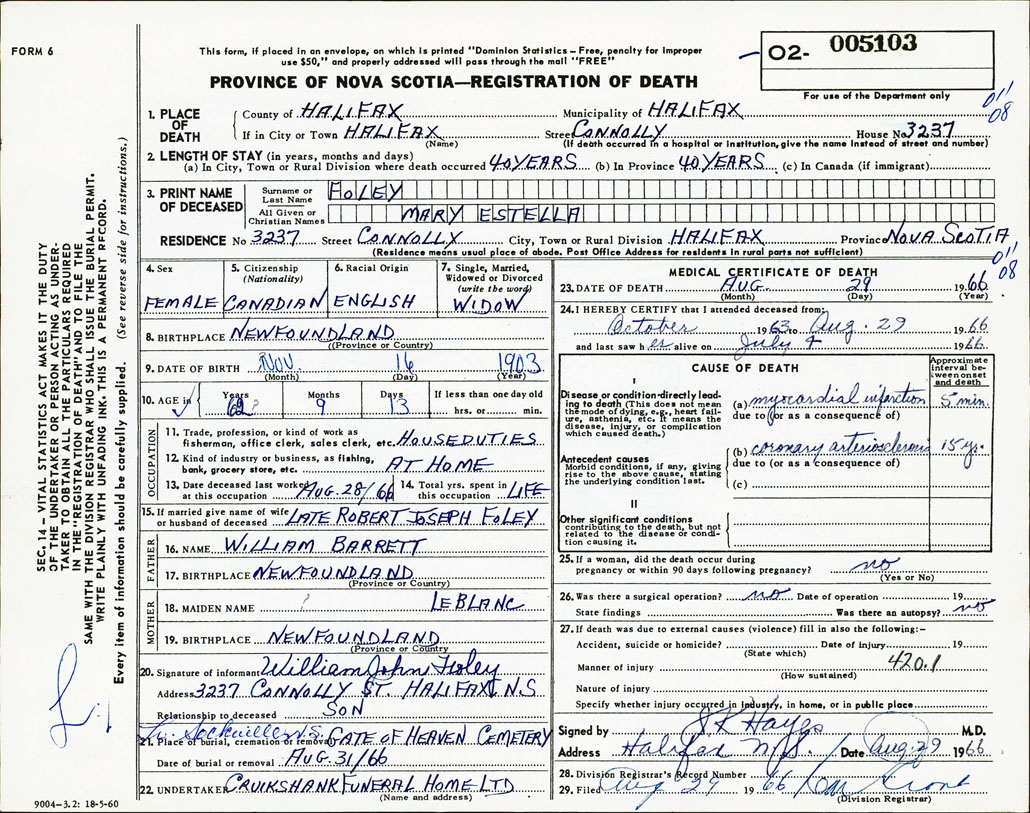 FORM 6
This form, if placed in an envelope, on which is printed "Dominion Statistics – Free, penalty for improper
use $50," and properly addressed will pass through the mail "FREE"
PROVINCE OF NOVA SCOTIA—REGISTRATION OF DEATH
O2- 005103
For use of the Department only
011
08
1. PLACE OF DEATH
County of HALIFAX Municipality of HALIFAX
If in City or Town HALIFAX Street CONNOLLY House No 3237
(Name) (If death occurred in a hospital or institution, give the name instead of street and number)
2. LENGTH OF STAY (in years, months and days)
(a) In City, Town or Rural Division where death occurred 40 YEARS (b) In Province 40 YEARS (c) In Canada (if immigrant)
3. PRINT NAME OF DECEASED
Surname or Last Name FOLEY
All Given or Christian Names MARY ESTELLA
RESIDENCE No 3237 Street CONNOLLY City, Town or Rural Division HALIFAX Province NOVA SCOTIA
(Residence means usual place of abode. Post Office Address for residents in rural parts not sufficient)
011
08
4. Sex FEMALE
5. Citizenship (Nationality) CANADIAN
6. Racial Origin ENGLISH
7. Single, Married, Widowed or Divorced (write the word) WIDOW
8. BIRTHPLACE NEWFOUNDLAND
(Province or Country)
9. DATE OF BIRTH NOV. 16 1903
(Month) (Day) (Year)
10. AGE in Years 62 ? Months 9 Days 13 If less than one day old
hrs. or min.
OCCUPATION
11. Trade, profession, or kind of work as
fisherman, office clerk, sales clerk, etc. HOUSEDUTIES
12. Kind of industry or business, as fishing,
bank, grocery store, etc. AT HOME
13. Date deceased last worked at this occupation AUG. 28/66 14. Total yrs. spent in this occupation LIFE
15. If married give name of wife
or husband of deceased LATE ROBERT JOSEPH FOLEY
FATHER
16. NAME WILLIAM BARRETT
17. BIRTHPLACE NEWFOUNDLAND
(Province or Country)
MOTHER
18. MAIDEN NAME ? LEBLANC
19. BIRTHPLACE NEWFOUNDLAND
(Province or Country
20. Signature of informant William John Foley
Address 3237 CONNOLLY ST. HALIFAX N.S
Relationship to deceased SON
Sackville N.S.
21. Place of burial, cremation or removal GATE OF HEAVEN CEMETERY
Date of burial or removal AUG. 31/66
22. UNDERTAKER CRUIKSHANK FUNERAL HOME LTD
(Name and address)
9004—3.2: 18-5-60
MEDICAL CERTIFICATE OF DEATH
23. DATE OF DEATH AUG. 29 1966
(Month) (Day) (Year)
24. I HEREBY CERTIFY that I attended deceased from:
October 1963 to Aug. 29 1966
and last saw her alive on July 4 1966
CAUSE OF DEATH
Approximate interval between onset and death
I
Disease or condition directly leading to death (This does not mean the mode of dying, e.g., heart failure, asthenia, etc. It means the disease, injury, or complication which caused death.)
(a) myocardial infarction 5 min.
due to (or as a consequence of)
(b) coronary arteriosclerosis 15 yr.
due to (or as a consequence of)
Antecedent causes
Morbid conditions, if any, giving rise to the above cause, stating the underlying condition last.
(c)
II
Other significant conditions
contributing to the death, but not related to the disease or condition causing it.
25. If a woman, did the death occur during
pregnancy or within 90 days following pregnancy? no
(Yes or No)
26. Was there a surgical operation? no Date of operation 19
State findings Was there an autopsy? no
27. If death was due to external causes (violence) fill in also the following:—
Accident, suicide or homicide? Date of injury 19
(State which)
Manner of injury 420.1
(How sustained)
Nature of injury
Specify whether injury occurred in industry, in home, or in public place
Signed by S K Hayes M.D.
Address Halifax N.S. Date Aug. 29 1966
28. Division Registrar's Record Number
29. Filed Aug 29 1966
(Division Registrar)
SEC. 14 – VITAL STATISTICS ACT MAKES IT THE DUTY
OF THE UNDERTAKER OR PERSON ACTING AS UNDER-
TAKER TO OBTAIN ALL THE PARTICULARS REQUIRED
IN THE "REGISTRATION OF DEATH" AND TO FILE THE
SAME WITH THE DIVISION REGISTRAR WHO SHALL ISSUE THE BURIAL PERMIT.
WRITE PLAINLY WITH UNFADING INK. THIS IS A PERMANENT RECORD.
Every item of information should be carefully supplied. (See reverse side for instructions.)